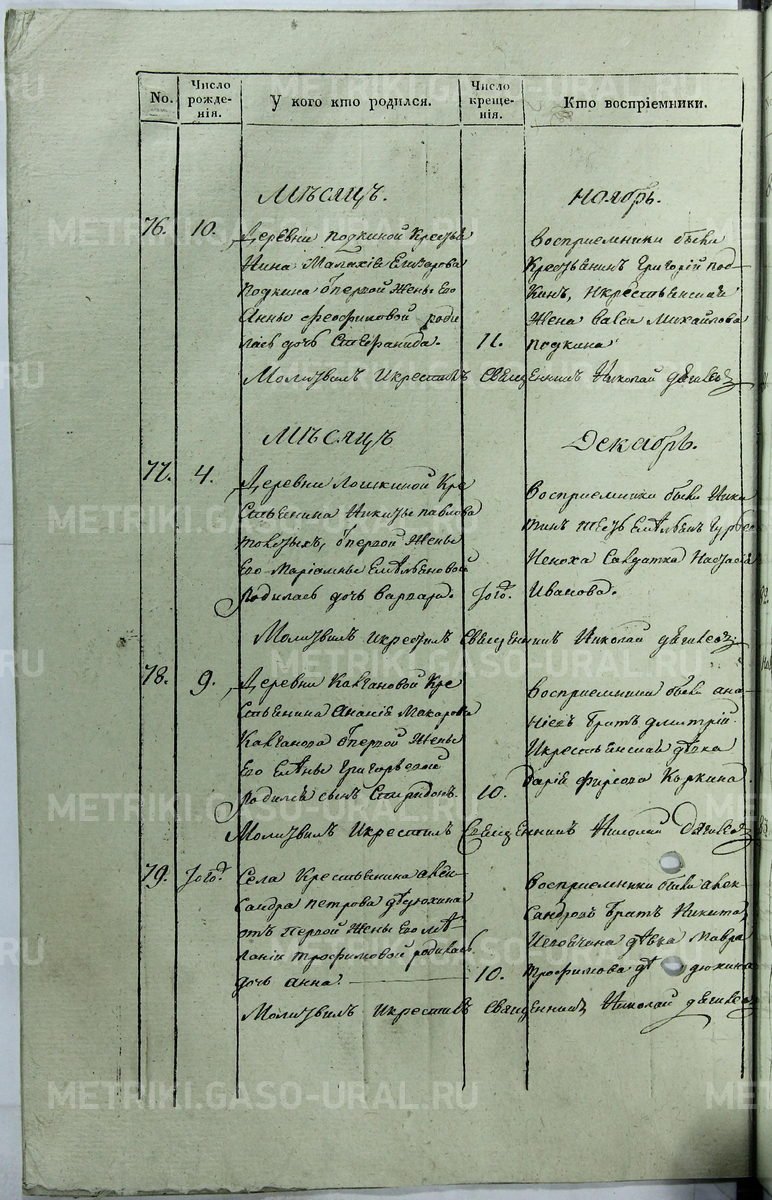 No.
Число рожде-нія.
У кого кто родился.
Число креще-нія.
Кто воспріемники.
Мѣсяцъ.
Ноябрь.
76.
10.
Деревни Подкиной Кресть
янина Малахія Елизарова
Подкина отпервой Жены Его
Анны Феофиловой роди
лась дочь Стефанида.
11.
Восприемники были
Крестьянинъ Григорий Под-
кинъ, Икрестьенская
Жена Васса Михайлова
Подкина
Молитвилъ Икрестилъ Священникъ Николай
Мѣсяцъ
Декабрь.
77.
4.
Деревни Лошкиной Кре
стьенина Никиты Павлова
отпервой Жены
Его Маріамны Емельеновой
родилась дочь Варвара.
Того.
Восприемники были Ники
тинъ тесть Емѣльянъ
Салдатка Настасія
Иванова.
Молитвилъ Икрестилъ Священникъ Николай
78.
9.
Деревни Кавтановой Кре
стьенина Ананія Макарова
Кавтанова отпервой Жены
Его Елѣны Григорьевой
родился сынъ Спиридонъ.
10.
Восприемники были Ана-
ніевъ братъ Дмитрій
Икрестьенская дѣвка
Дарія Фирсова Коркина.
Молитвилъ Икрестилъ Священникъ Николай
79.
Того.
Села Крестьенина Алек
сандра Петрова Дѣдюхина
отъ первой Жены Его Мелѣ-
ланіи Трофимовой родилась
дочь Анна.
10.
Восприемники были Алек-
сандровъ братъ Никита,
дѣвка Мавра
Трофимова Дѣдюхина
Молитвилъ Икрестилъ Священникъ Николай
METRIKI.GASO-URAL.RU